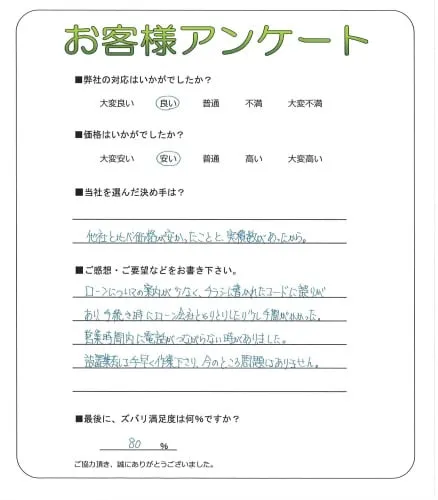 お客様アンケート
■弊社の対応はいかがでしたか?
大変良い 良い 普通 不満 大変不満
■価格はいかがでしたか?
大変安い 安い 普通 高い 大変高い
■当社を選んだ決め手は?
他社と比べ価格が安かったことと、実績数があったから。
■ご感想・ご要望などをお書き下さい。
ローンについての案内が少なく、チラシに書かれたコードに誤りが
あり、手続き時にローン会社とやりとりしたり少し手間がかかった。
営業時間内に電話がつながらない時がありました。
設置業者は手早く作業下さり、今のところ問題はありません。
■最後に、ズバリ満足度は何%ですか?
80 %
ご協力頂き、誠にありがとうございました。